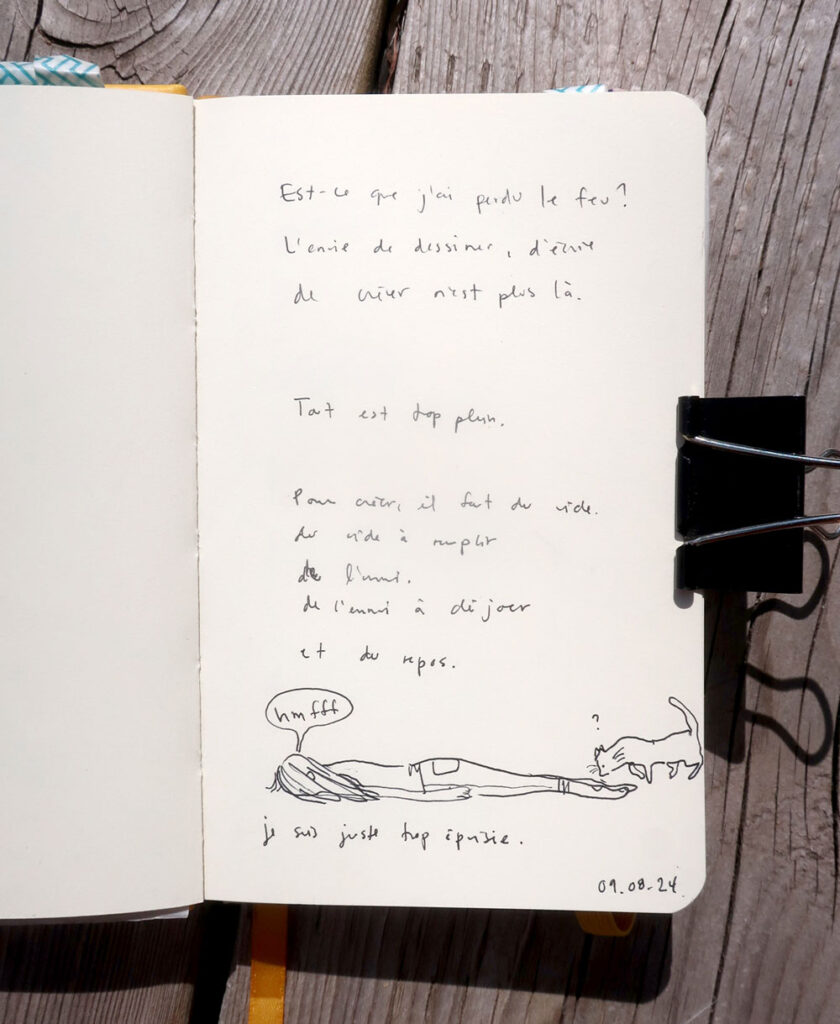 Est-ce que j'ai perdu le feu?
L'envie de dessiner, d'écrire
de créer n'est plus là.
Tout est trop plein.
Pour créer, il faut du vide.
du vide à remplir
de l'ennui.
de l'ennui à déjouer
et du repos.
hmfff
?
je suis juste trop épuisée.
09.08.24